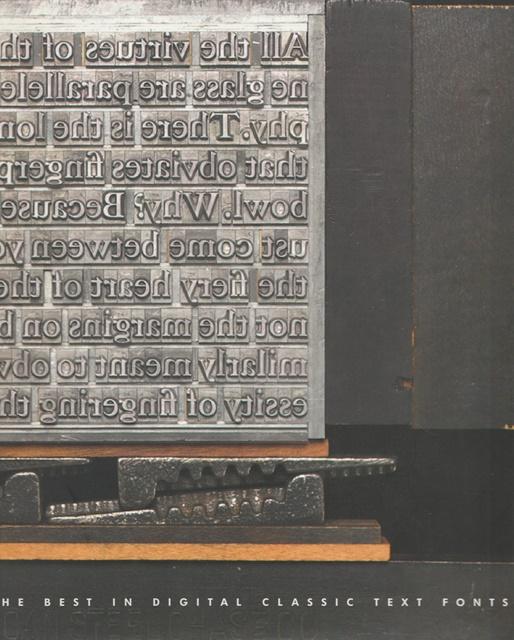 All the virtues of th
ne glass are parallele
phy. There is the lon
that obviates fingerp
bowl. Why? Because
ust come between yo
the fiery heart of th
not the margins on b
milarly meant to obv
essity of fingering th
HE BEST IN DIGITAL CLASSIC TEXT FONTS